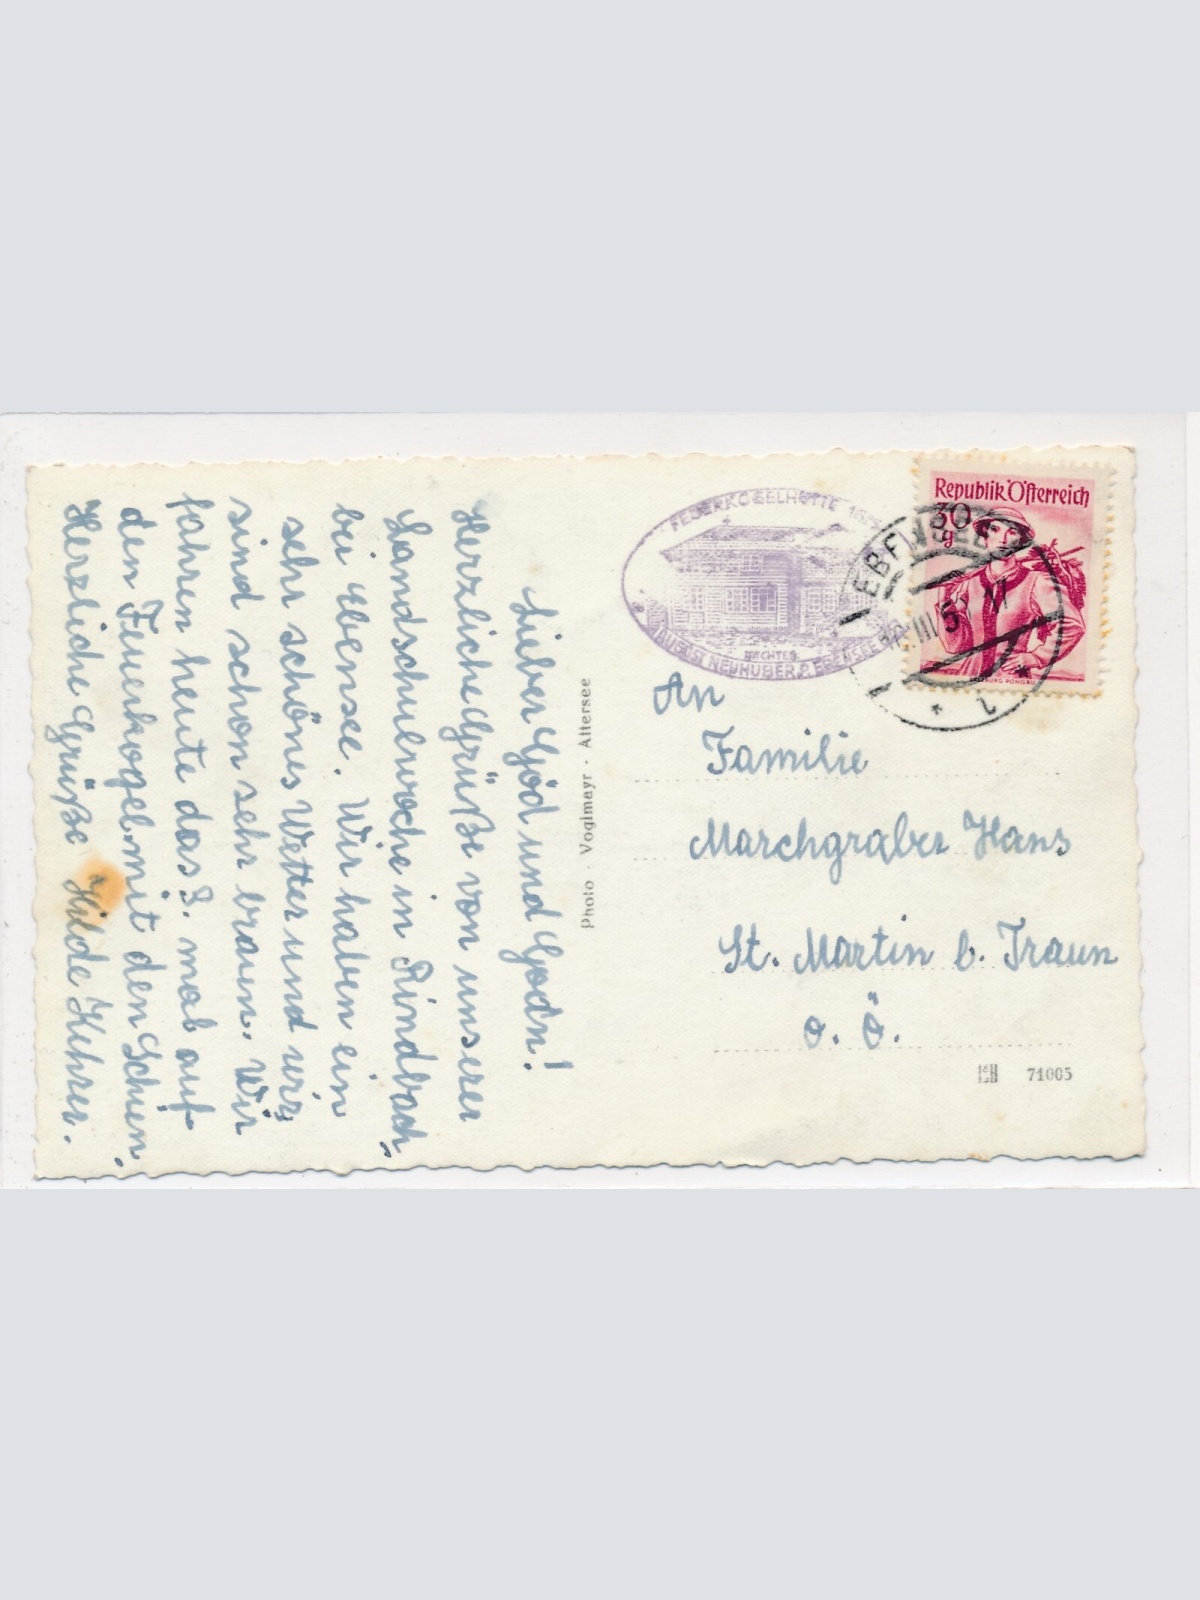 Lieber Göd und Godn!
Herzliche Grüße von unserer
Landschulwoche in Rindbach
bei Ebensee. Wir haben ein
sehr schönes Wetter und wir
sind schon sehr braun. Wir
fahren heute das 3. mal auf
den Feuerkogel mit den Schien.
Herzliche Grüße Hilde Kehrer.
Photo · Voglmayr · Attersee
FEUERKOGELHÜTTE
PÄCHTER
NEUHUBER, P. EBENSEE
Republik Österreich
30
g
SALZBURG PONGAU
EBENSEE
III
An
Familie
Marchgraber Hans
St. Martin b. Traun
O. Ö.
71005